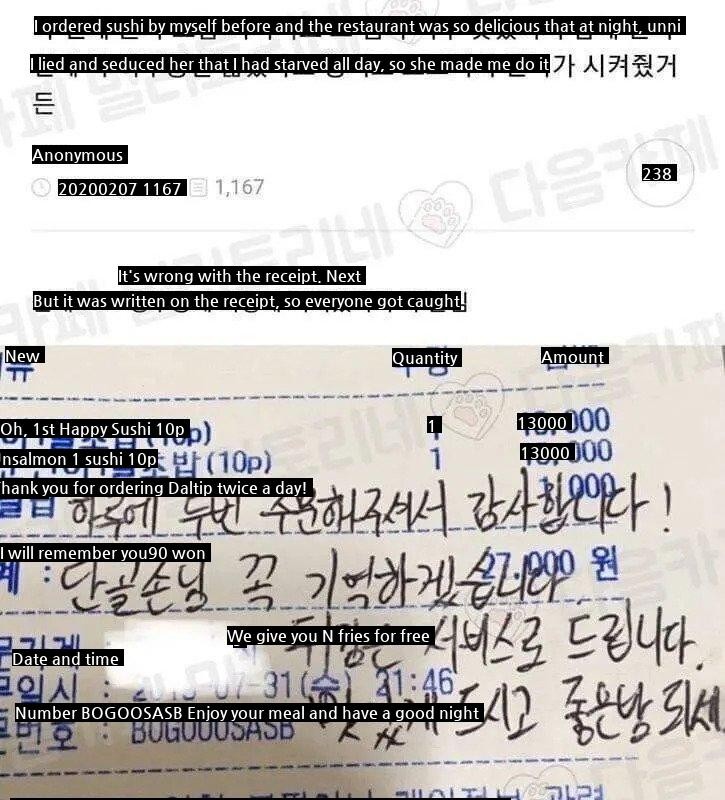 I ordered sushi by myself before and the restaurant was so delicious that at night, unni
I lied and seduced her that I had starved all day, so she made me do it가 시켜줬거
든
Anonymous
20200207 1167 1,167
238
It's wrong with the receipt. Next
But it was written on the receipt, so everyone got caught!
New Quantity Amount
Oh, 1st Happy Sushi 10p 1 13000
Unsalmon 1 sushi 10p 초밥(10p) 1 13000
Thank you for ordering Daltip twice a day!
하루에 두번 주문해주셔서 감사합니다!
I will remember you90 won
단골손님 꼭 기억하겠습니다 27,000 원
We give you N fries for free
튀김은 서비스로 드립니다.
Date and time
07-31(수) 21:46
맛있게 드시고 좋은밤 되세
Number BOGOOSASB Enjoy your meal and have a good night
번호 : B0GO00SASB
다음카페